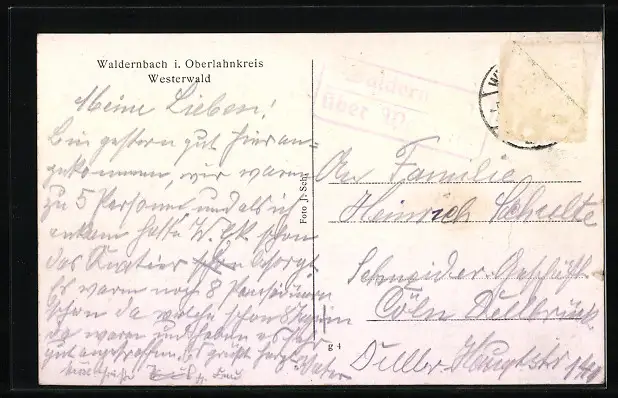 Waldernbach i. Oberlahnkreis
Westerwald
Meine Lieben!
Bin gestern gut hier an=
gekommen, wir waren
zu 5 Personen und als ich
ankam hatte W. schon
das Kwatier schon besorgt
Er waren noch 8 Personen
schon da welche schon 8
da waren und haben es
gut angetroffen. Es grüßt herzl.
Vater
Foto J.
g 4
Waldern
über W
An Familie
Heinrich Schulte
Schneider-Geschäft
Cöln Dellbrück
Deller Hauptstr